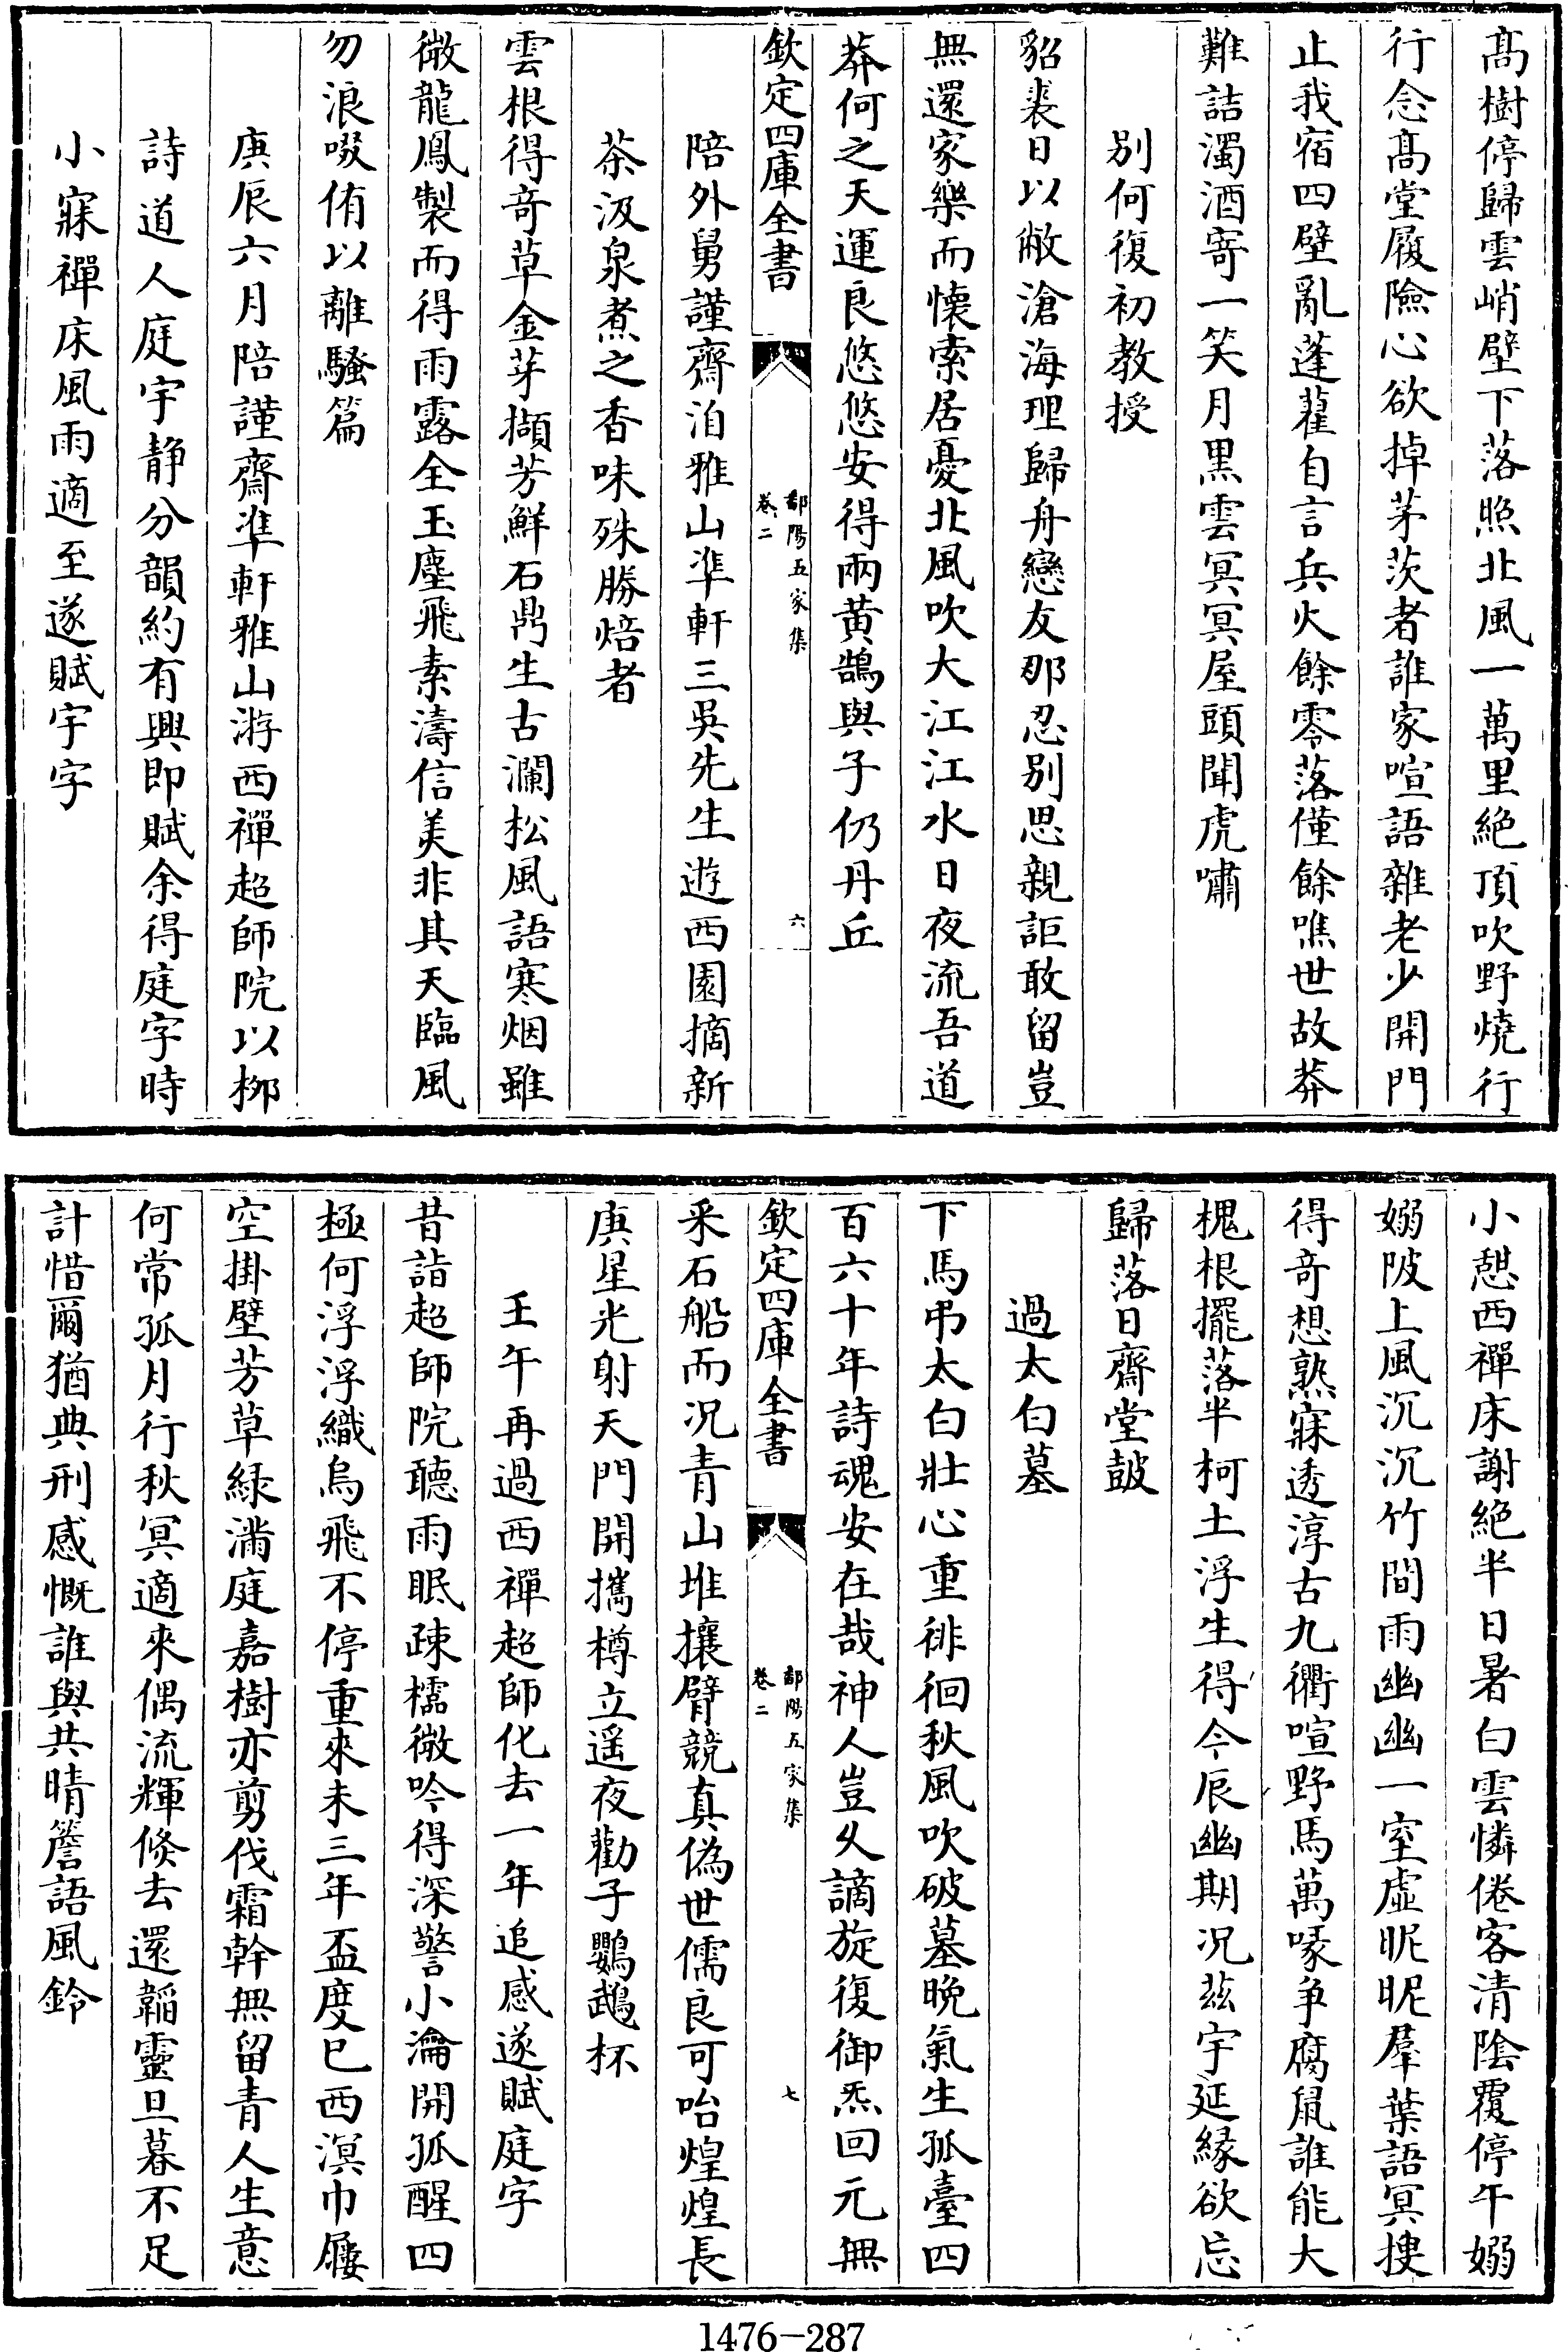 髙樹停歸雲峭壁下落照北風一萬里絶頂吹野燒行
行念髙堂履險心欲掉茅茨者誰家喧語雜老少開門
止我宿四壁亂蓬藋自言兵火餘零落僅餘噍世故莽
難詰濁酒寄一笑月黒雲冥冥屋頭聞虎嘯
别何復初教授
貂裘日以敝滄海理歸舟戀友那忍别思親詎敢留豈
無還家樂而懐索居憂北風吹大江江水日夜流吾道
莽何之天運良悠悠安得兩黄鵠與子仍丹丘
欽定四庫全書
鄱陽五家集
卷二
六
陪外舅謹齋泊雅山準軒三吳先生遊西園摘新
茶汲泉煮之香味殊勝焙者
雲根得竒草金芽擷芳鮮石鼎生古瀾松風語寒烟雖
微龍鳳製而得雨露全玉塵飛素濤信美非其天臨風
勿浪啜侑以離騷篇
庚辰六月陪謹齋準軒雅山游西禪超師院以栁
詩道人庭宇静分韻約有興即賦余得庭字時
小寐禪床風雨適至遂賦宇字
小憩西禪床謝絶半日暑白雲憐倦客清隂覆停午嫋
嫋陂上風沉沉竹間雨幽幽一室虚昵昵羣葉語冥搜
得竒想熟寐透淳古九衢喧野馬萬喙争腐鼠誰能大
槐根擺落半柯土浮生得今辰幽期况兹宇延縁欲忘
歸落日齋堂皷
過太白墓
下馬弔太白壯心重徘徊秋風吹破墓晚氣生孤臺四
百六十年詩魂安在哉神人豈乆謫旋復御炁回元無
采石船而况青山堆攘臂競真偽世儒良可咍煌煌長
庚星光射天門開攜樽立遥夜勸子鸚鵡杯
欽定四庫全書
鄱陽五家集
卷二
七
壬午再過西禪超師化去一年追感遂賦庭字
昔詣超師院聽雨眠疎櫺微吟得深警小瀹開孤醒四
極何浮浮織烏飛不停重來未三年盃度已西溟巾屨
空掛壁芳草緑滿庭嘉樹亦剪伐霜幹無留青人生意
何常孤月行秋冥適來偶流輝倐去還韜靈旦暮不足
計惜爾猶典刑感慨誰與共晴簷語風鈴
1476-287